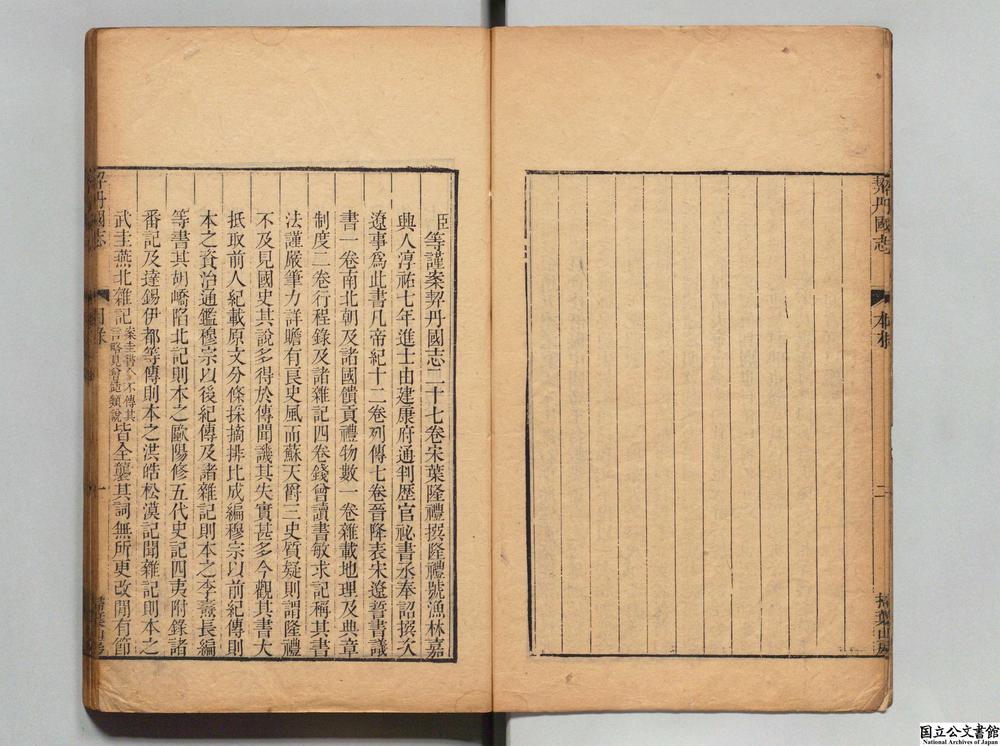 契丹國志
本末
二
掃葉山房
臣等謹案契丹國志二十七卷宋葉隆禮撰隆禮號漁林嘉
興人淳祐七年進士由建康府通判歷官祕書丞奉詔撰次
遼事爲此書凡帝紀十二卷列傳七卷晉降表宋遼誓書議
書一卷南北朝及諸國饋貢禮物數一卷雜載地理及典章
制度二卷行程錄及諸雜記四卷錢曾讀書敏求記稱其書
法謹嚴筆力詳贍有良史風而蘇天爵三史質疑則謂隆禮
不及見國史其說多得於傳聞譏其失實甚多今觀其書大
抵取前人紀載原文分條採摘排比成編穆宗以前紀傳則
本之資治通鑑穆宗以後紀傳及諸雜記則本之李燾長編
等書其胡嶠陷北記則本之歐陽修五代史記四夷附錄諸
番記及達錫伊都等傳則本之洪皓松漠記聞雜記則本之
武圭燕北雜記案圭書今不傳其言略見曾慥類說皆全襲其詞無所更改間有節
契丹國志
目錄
一
掃葉山房
国立公文書館
National Archives of Japan